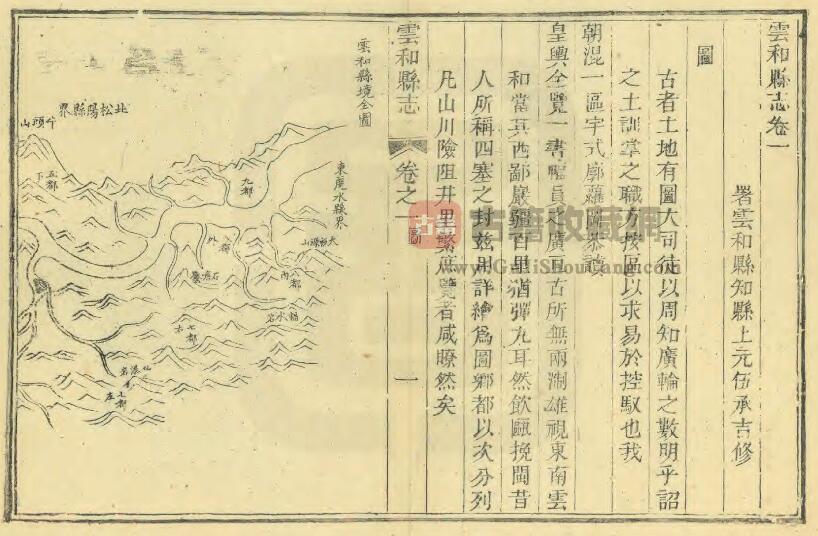 雲和縣志卷一
署雲和縣知縣上元伍承吉修
圖
古者土地有圖大司徒以周知廣輪之數明乎詔
之土訓掌之職方按區以求易於控馭也我
朝混一區宇式廓
皇輿全覽一書幅員之廣亘古所無兩浙雄視東南雲
和當其西鄙巖疆百里猶彈丸耳然飲甌挽閩昔
人所稱四塞之封茲用詳繪爲圖鄉都以次分列
凡山川險阻井里繁庶覽者咸瞭然矣
雲和縣志
卷之一
圖
一
雲和縣境全圖
東麗水縣界
北松陽縣界
五都
九都
七都
古籍收藏網
www.GuJiShouCang.com